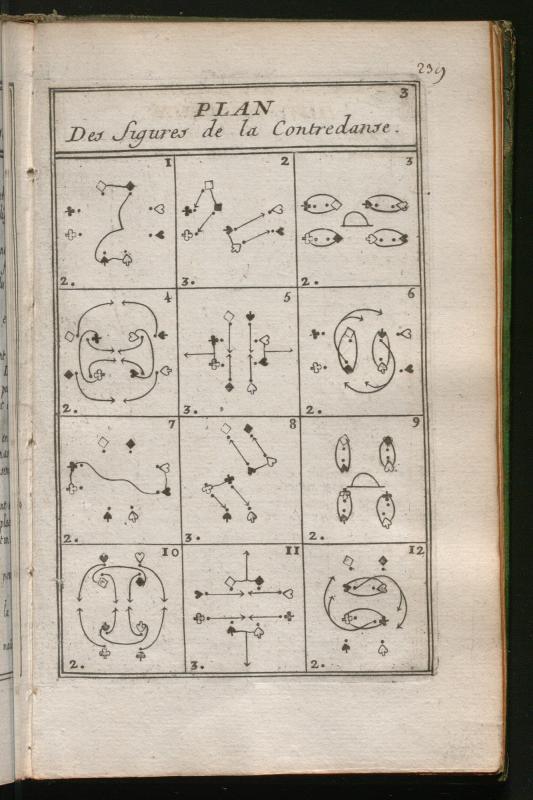 239
3
PLAN
Des figures de la Contredanse.
1 2 3
2. 3. 2.
4 5 6
2. 3. 2.
7 8 9
2. 3. 2.
10 11 12
2. 3. 2.